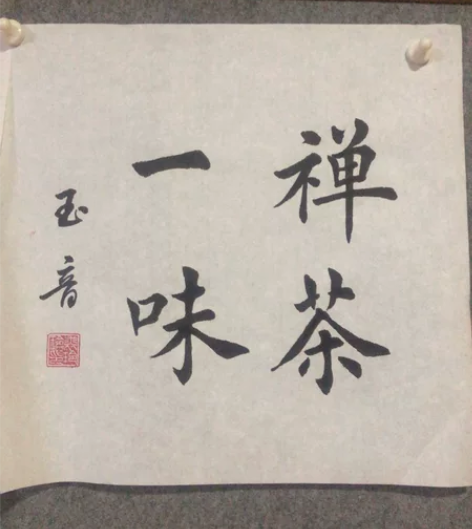 禅茶
一味
玉音